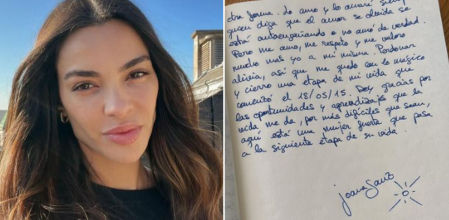 otra forma. Lo amo y lo amaré siem
quien diga que el amor se olvida se
está autoengañando o no amó de verdad.
Pero me amo, me respeto y me valoro
mucho más yo a mí misma. Perdonar
alivia, así que me quedo con lo mágico
y cierro una etapa de mi vida que
comenzó el 18/05/15. Doy gracias por
las oportunidades y aprendizajes que la
vida me da, por más difíciles que sean,
aquí está una mujer fuerte que pasa
a la siguiente etapa de su vida.
joana sanz